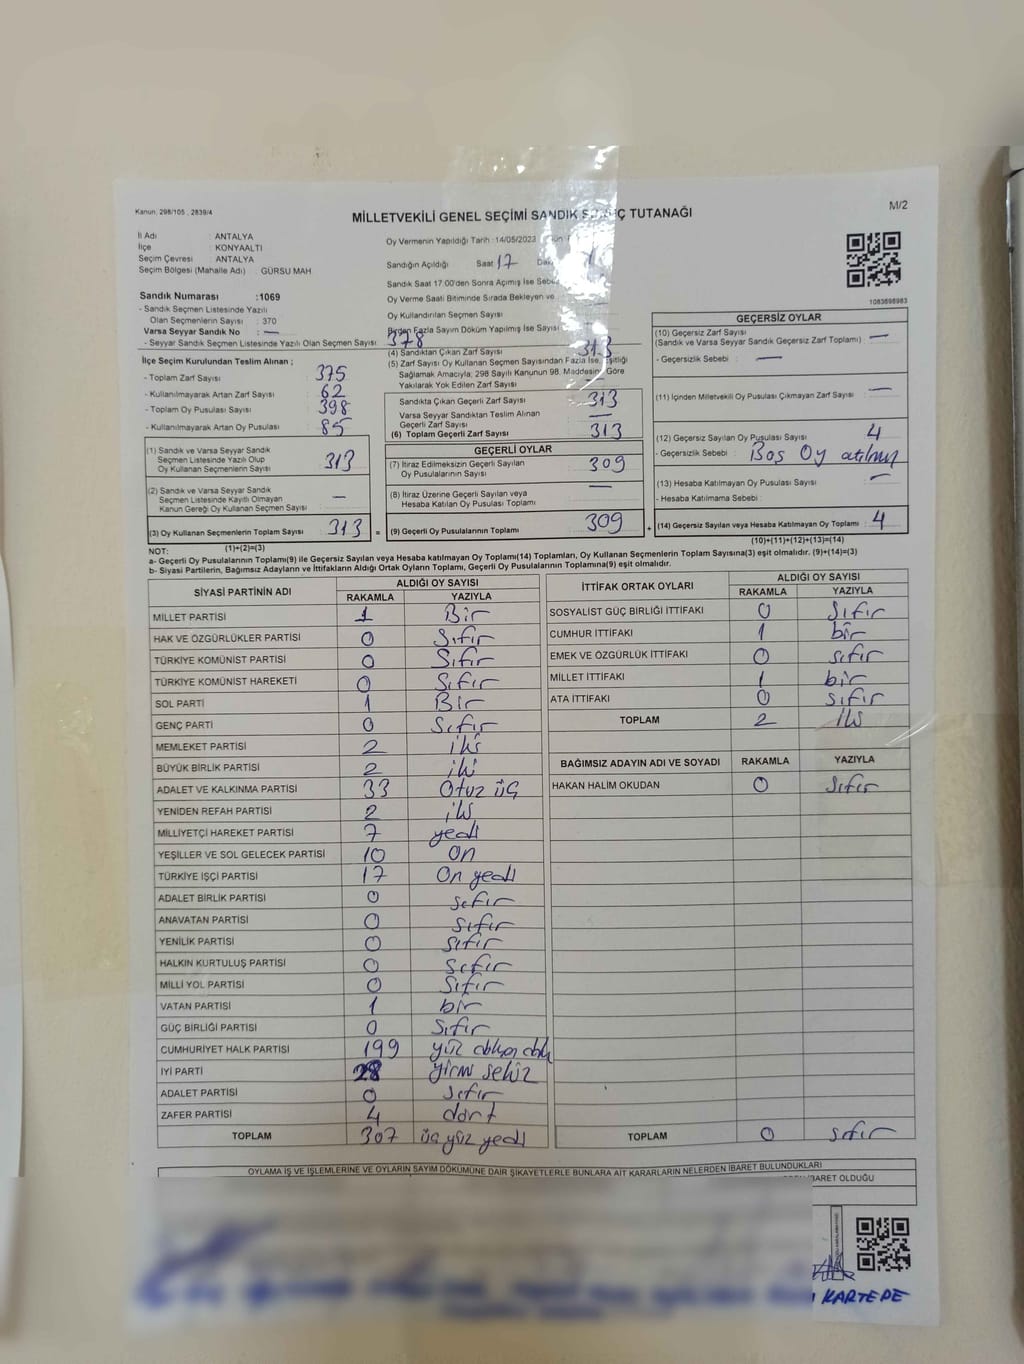 Kanun, 298/105 , 2839/4
M/2
MİLLETVEKİLİ GENEL SEÇİMİ SANDIK TUTANAĞI
İl Adı : ANTALYA
İlçe : KONYAALTI
Seçim Çevresi : ANTALYA
Seçim Bölgesi (Mahalle Adı) : GÜRSU MAH
Sandık Numarası :1069
- Sandık Seçmen Listesinde Yazılı
Olan Seçmenlerin Sayısı : 370
Varsa Seyyar Sandık No : —
- Seyyar Sandık Seçmen Listesinde Yazılı Olan Seçmen Sayısı : 378
Oy Vermenin Yapıldığı Tarih :14/05/2023
Sandığın Açıldığı Saat 17
Sandık Saat 17.00'den Sonra Açımış İse
Oy Verme Saati Bitiminde Sırada Bekleyen ve
Oy Kullandırılan Seçmen Sayısı
Birden Fazla Sayım Döküm Yapılmış İse Sayısı
1083898983
İlçe Seçim Kurulundan Teslim Alınan ;
- Toplam Zarf Sayısı : 375
- Kullanılmayarak Artan Zarf Sayısı : 62
- Toplam Oy Pusulası Sayısı : 398
- Kullanılmayarak Artan Oy Pusulası : 85
(1) Sandık ve Varsa Seyyar Sandık
Seçmen Listesinde Yazılı Olup
Oy Kullanan Seçmenlerin Sayısı : 313
(2) Sandık ve Varsa Seyyar Sandık
Seçmen Listesinde Kayıtlı Olmayan
Kanun Gereği Oy Kullanan Seçmen Sayısı : —
(3) Oy Kullanan Seçmenlerin Toplam Sayısı : 313 =
(1)+(2)=(3)
(4) Sandıktan Çıkan Zarf Sayısı : 313
(5) Zarf Sayısı Oy Kullanan Seçmen Sayısından Fazla İse, Eşitliği
Sağlamak Amacıyla; 298 Sayılı Kanunun 98. Maddesine Göre
Yakılarak Yok Edilen Zarf Sayısı :
Sandıkta Çıkan Geçerli Zarf Sayısı : 313
Varsa Seyyar Sandıktan Teslim Alınan
Geçerli Zarf Sayısı : —
(6) Toplam Geçerli Zarf Sayısı : 313
GEÇERLİ OYLAR
(7) İtiraz Edilmeksizin Geçerli Sayılan
Oy Pusulalarının Sayısı : 309
(8) İtiraz Üzerine Geçerli Sayılan veya
Hesaba Katılan Oy Pusulası Toplamı : —
(9) Geçerli Oy Pusulalarının Toplamı : 309 +
GEÇERSİZ OYLAR
(10) Geçersiz Zarf Sayısı
(Sandık ve Varsa Seyyar Sandık Geçersiz Zarf Toplamı) : —
- Geçersizlik Sebebi : —
(11) İçinden Milletvekili Oy Pusulası Çıkmayan Zarf Sayısı : —
(12) Geçersiz Sayılan Oy Pusulası Sayısı : 4
- Geçersizlik Sebebi : Boş Oy atılmış
(13) Hesaba Katılmayan Oy Pusulası Sayısı : —
- Hesaba Katılmama Sebebi :
(14) Geçersiz Sayılan veya Hesaba Katılmayan Oy Toplamı : 4
(10)+(11)+(12)+(13)=(14)
NOT:
a- Geçerli Oy Pusulalarının Toplamı(9) ile Geçersiz Sayılan veya Hesaba katılmayan Oy Toplamı(14) Toplamları, Oy Kullanan Seçmenlerin Toplam Sayısına(3) eşit olmalıdır. (9)+(14)=(3)
b- Siyasi Partilerin, Bağımsız Adayların ve İttifakların Aldığı Ortak Oyların Toplamı, Geçerli Oy Pusulalarının Toplamına(9) eşit olmalıdır.
SİYASİ PARTİNİN ADI ALDIĞI OY SAYISI
RAKAMLA YAZIYLA
MİLLET PARTİSİ 1 Bir
HAK VE ÖZGÜRLÜKLER PARTİSİ 0 Sıfır
TÜRKİYE KOMÜNİST PARTİSİ 0 Sıfır
TÜRKİYE KOMÜNİST HAREKETİ 0 Sıfır
SOL PARTİ 1 Bir
GENÇ PARTİ 0 Sıfır
MEMLEKET PARTİSİ 2 iki
BÜYÜK BİRLİK PARTİSİ 2 iki
ADALET VE KALKINMA PARTİSİ 33 Otuz üç
YENİDEN REFAH PARTİSİ 2 iki
MİLLİYETÇİ HAREKET PARTİSİ 7 yedi
YEŞİLLER VE SOL GELECEK PARTİSİ 10 on
TÜRKİYE İŞÇİ PARTİSİ 17 On yedi
ADALET BİRLİK PARTİSİ 0 sıfır
ANAVATAN PARTİSİ 0 sıfır
YENİLİK PARTİSİ 0 sıfır
HALKIN KURTULUŞ PARTİSİ 0 sıfır
MİLLİ YOL PARTİSİ 0 sıfır
VATAN PARTİSİ 1 bir
GÜÇ BİRLİĞİ PARTİSİ 0 sıfır
CUMHURİYET HALK PARTİSİ 199 yüz
İYİ PARTİ 28 yirmi sekiz
ADALET PARTİSİ 0 sıfır
ZAFER PARTİSİ 4 dört
TOPLAM 307 üç yüz yedi
İTTİFAK ORTAK OYLARI ALDIĞI OY SAYISI
RAKAMLA YAZIYLA
SOSYALİST GÜÇ BİRLİĞİ İTTİFAKI 0 sıfır
CUMHUR İTTİFAKI 1 bir
EMEK VE ÖZGÜRLÜK İTTİFAKI 0 sıfır
MİLLET İTTİFAKI 1 bir
ATA İTTİFAKI 0 sıfır
TOPLAM 2 iki
BAĞIMSIZ ADAYIN ADI VE SOYADI RAKAMLA YAZIYLA
HAKAN HALİM OKUDAN 0 sıfır
TOPLAM 0 sıfır
OYLAMA İŞ VE İŞLEMLERİNE VE OYLARIN SAYIM DÖKÜMÜNE DAİR ŞİKAYETLERLE BUNLARA AİT KARARLARIN NELERDEN İBARET BULUNDUKLARI
İBARET OLDUĞU
KARTEPE